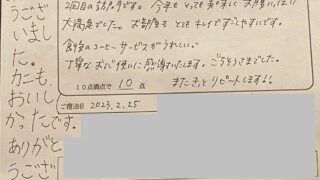 2回目の訪問です。今年もとっても美味しくお腹いっぱい
大満足でした。お部屋もとてもキレイですごしやすいです。
食後のコーヒーサービスがうれしい♡
丁寧なお心使いに感謝いたします。ごちそうさまでした。
10点満点で 10 点
またきっとリピートしますよ。
ご宿泊日 2023.2.25
うござ
いまし
た。
カニも
おいし
かったです。
ありがと
うござ